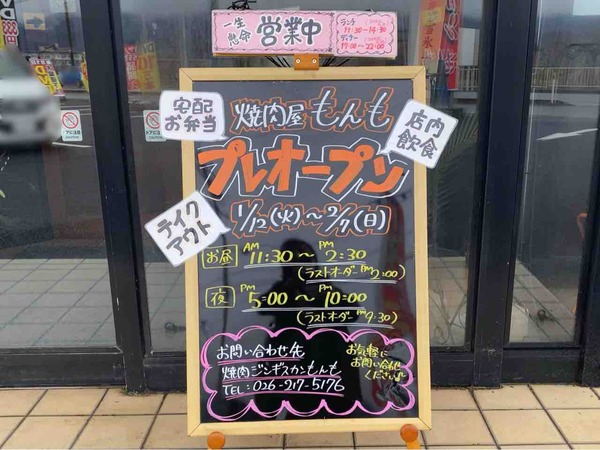 一生
懸命
営業中
ランチ
11:30~14:30
ディナー
17:00~22:00
宅配
お弁当
焼肉屋もんも
店内
飲食
プレオープン
テイク
アウト
1/12(火)~2/7(日)
お昼 AM 11:30~PM 2:30
(ラストオーダーPM2:00)
夜 PM 5:00~PM 10:00
(ラストオーダーPM9:30)
お問い合わせ先
焼肉ジンギスカンもんも
TEL:026-217-5176
お気軽に
お問い合わせ
ください